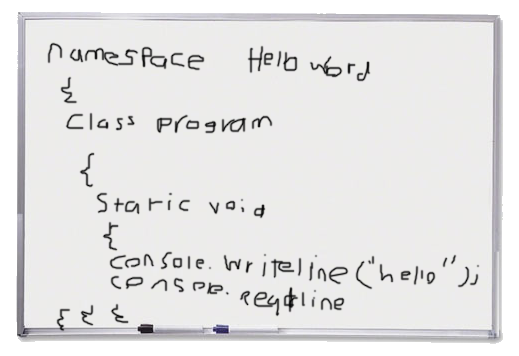 namespace Hello word
{
Class program
{
Static void
{
console.writeline("hello");
console.readline
{ { {